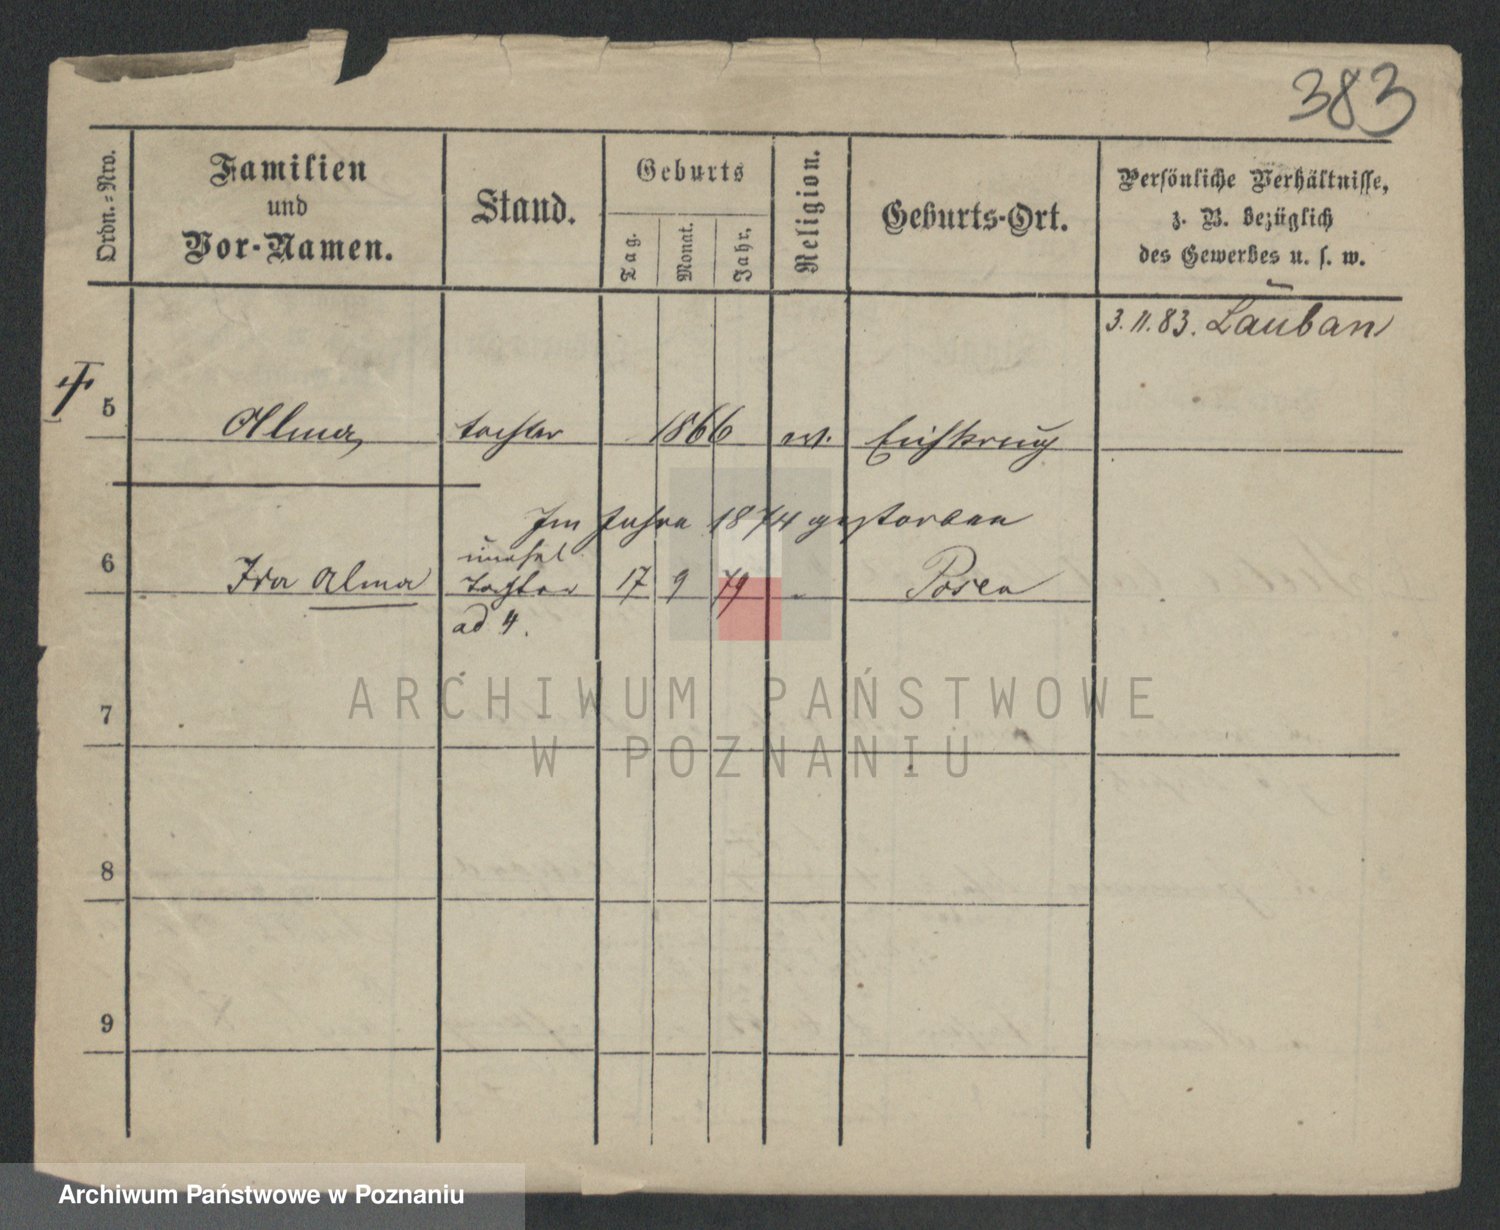 383
Ordn.-Nro.
Familien
und
Vor-Namen.
Stand.
Geburts
Tag.
Monat.
Jahr.
Religion.
Geburts-Ort.
Persönliche Verhältnisse,
z. B. bezüglich
des Gewerbes u. s. w.
3.11.83. Lauban
5 Alma tochter 1866 ev. Eichkrug
Im Jahre 1874 gestorben
6 Ida Alma unehel 17 9 79 " Posen
Tochter
ad 4.
7
8
9
ARCHIWUM PAŃSTWOWE
W POZNANIU
Archiwum Państwowe w Poznaniu